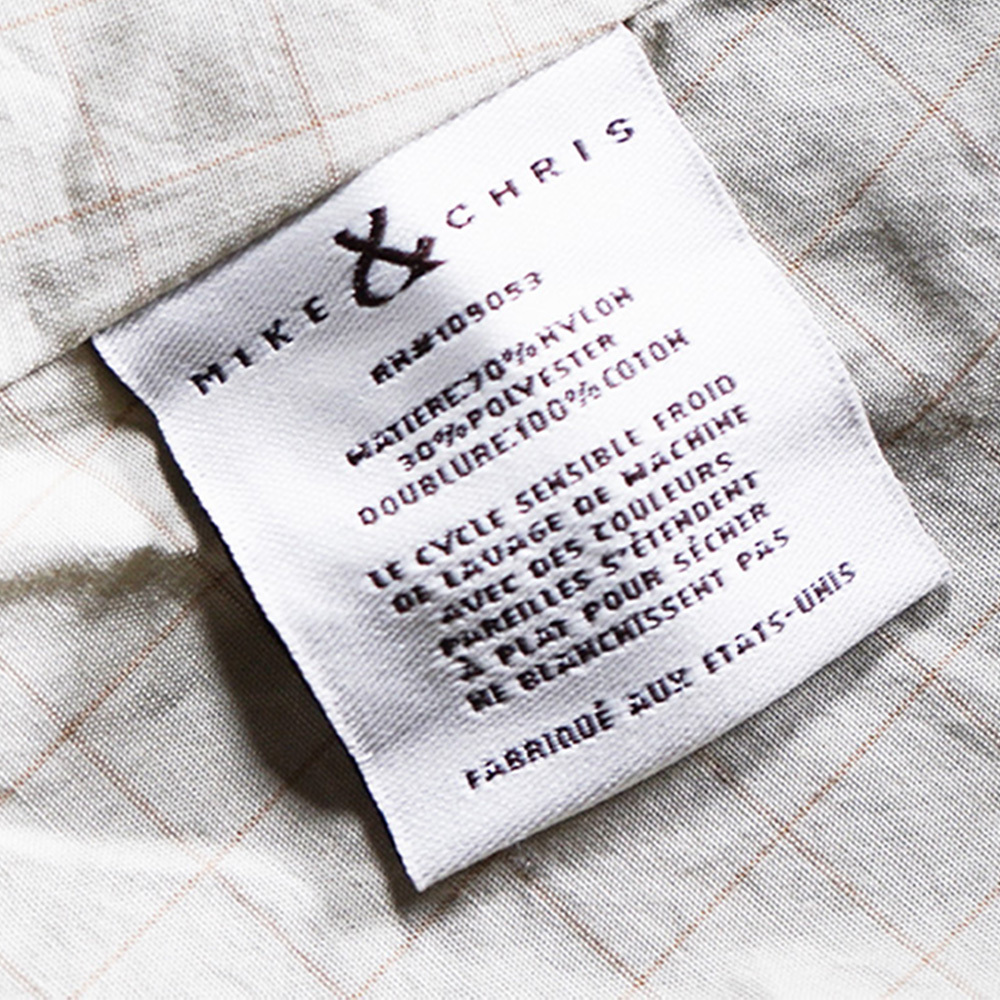 MIKE & CHRIS
RN#109053
MATIERE:70%NYLON
30%POLYESTER
DOUBLURE:100%COTON
LE CYCLE SENSIBLE FROID
DE LAVAGE DE MACHINE
AVEC DES COULEURS
PAREILLES S'ÉTENDENT
À PLAT POUR SÉCHER
NE BLANCHISSENT PAS
FABRIQUÉ AUX ETATS-UNIS